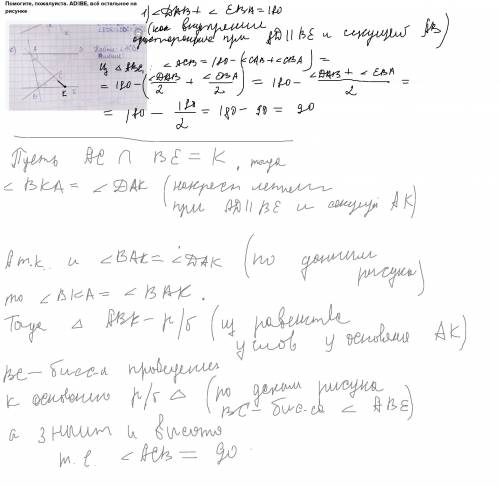 Помогите, пожалуйста. AD||BE, всё остальное на
рисунке
1) ∠DAB + ∠EBA = 180
(как внутренние
односторонние при AD || BE и секущей AB)
Из △ABC, ∠ACB = 180 - (∠CAB + ∠CBA) =
= 180 - (∠DAB/2 + ∠EBA/2) = 180 - (∠DAB + ∠EBA)/2 =
= 180 - 180/2 = 180 - 90 = 90
Пусть AC ∩ BE = K, тогда
∠BKA = ∠DAK (накрест лежащие
при AD || BE и секущей AK)
А т.к. и ∠BAK = ∠DAK (по данным
рисунка)
то ∠BKA = ∠BAK.
Тогда △ ABK - р/б (из равенства
углов у основания AK)
BC - бисс-а проведенная
к основанию р/б △ (по данным рисунка
BC - бис-са ∠ ABE)
а значит и высота
т.е ∠ACB = 90